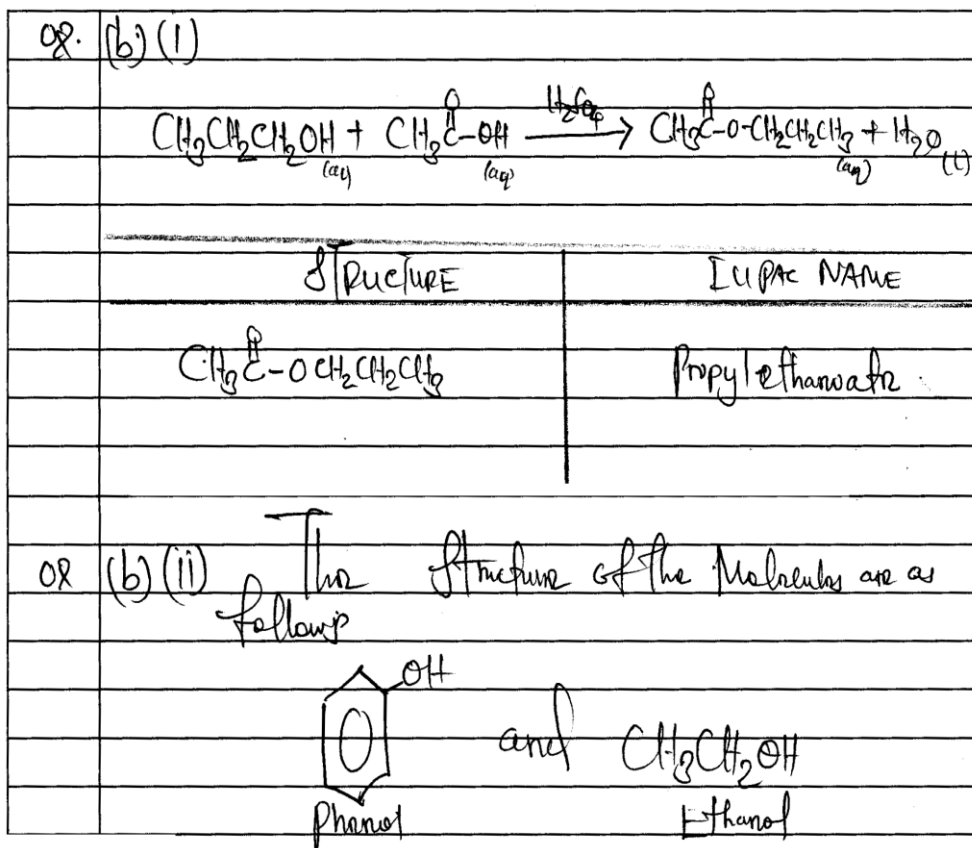 08. (b) (i)
CH₃CH₂CH₂OH (aq) + CH₃C(=O)-OH (aq) —H₂SO₄→ CH₃C(=O)-O-CH₂CH₂CH₃ (aq) + H₂O (l)
STRUCTURE IUPAC NAME
CH₃C(=O)-OCH₂CH₂CH₃ Propylethanoate.
08 (b) (ii) The Structure of the Molecules are as
follows
OH
and CH₃CH₂OH
Phenol Ethanol